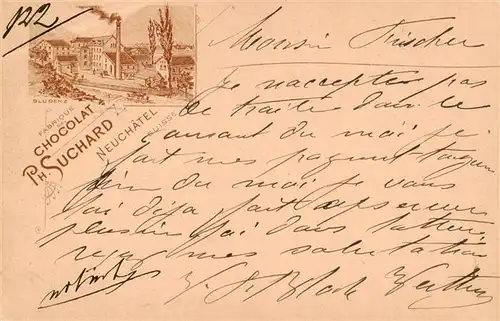 122
BLUDENZ
FABRIQUE
DE
CHOCOLAT
PH. SUCHARD
NEUCHÂTEL
SUISSE
Monsieur Fuscher
Je n'accepte pas
de traite dans le
courant du moi je
fait mes payement toujour
fin du moi je vous
l'ai déja fait observer
plusieur foi dans l'attente
recevez mes salutation
V. St. Bloch